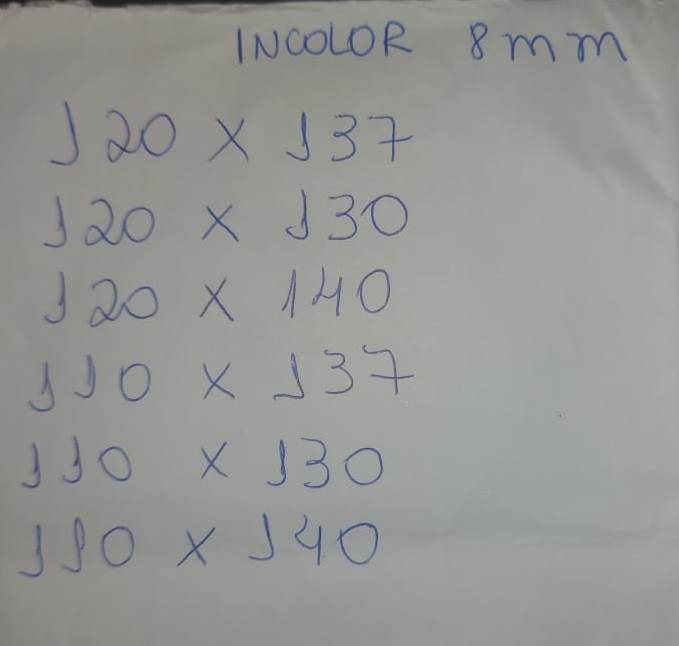 INCOLOR 8mm
120 x 137
120 x 130
120 x 140
110 x 137
110 x 130
110 x 140